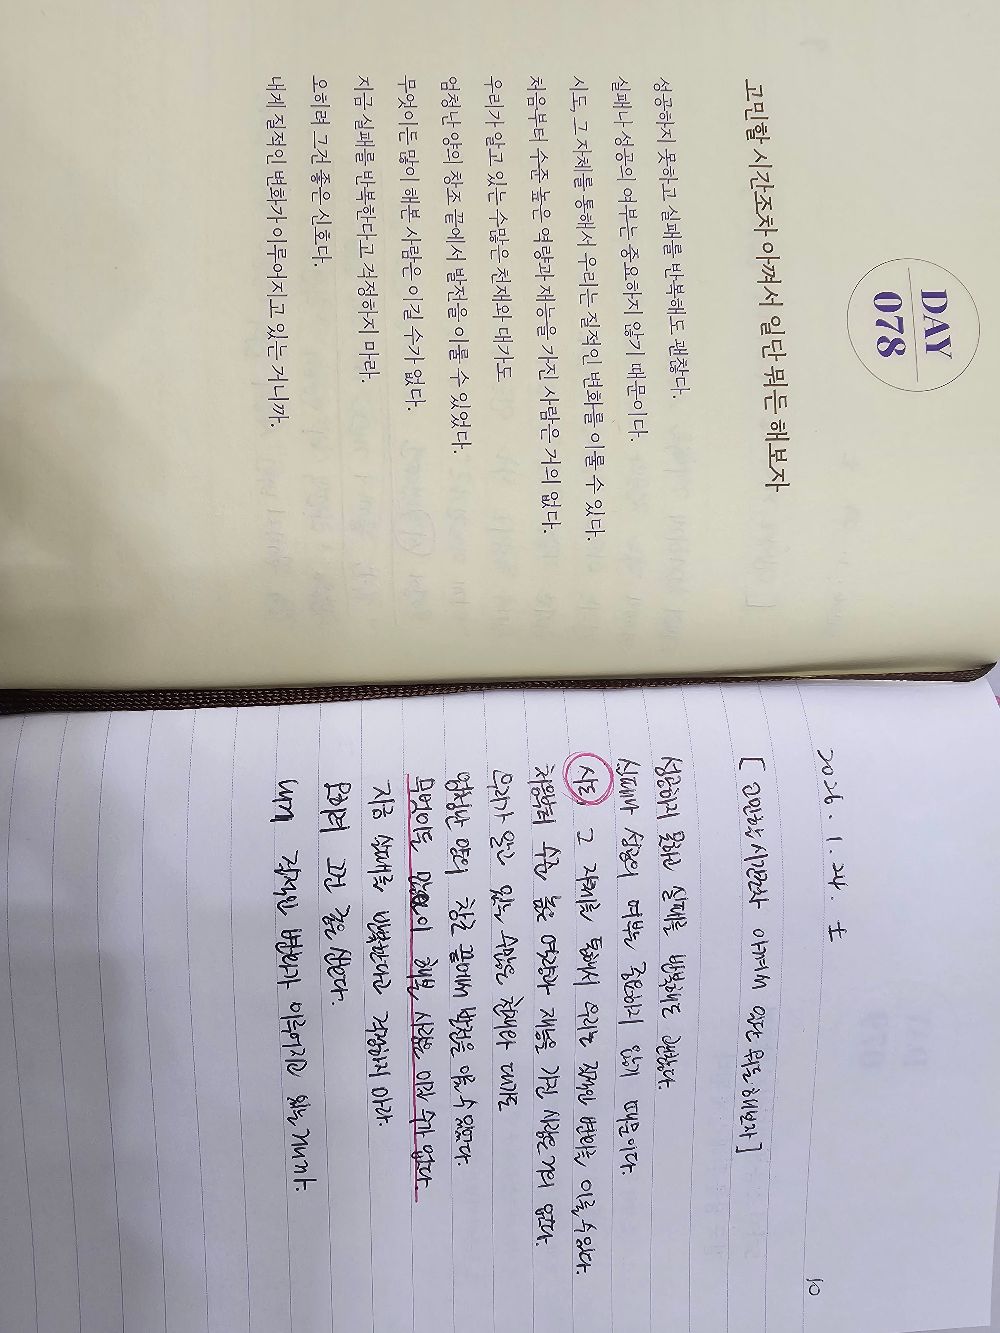 DAY
078
고민할 시간조차 아껴서 일단 뭐든 해보자
성공하지 못하고 실패를 반복해도 괜찮다.
실패나 성공의 여부는 중요하지 않기 때문이다.
시도, 그 자체를 통해서 우리는 질적인 변화를 이룰 수 있다.
처음부터 수준 높은 역량과 재능을 가진 사람은 거의 없다.
우리가 알고 있는 수많은 천재와 대가도
엄청난 양의 창조 끝에서 발전을 이룰 수 있었다.
무엇이든 많이 해본 사람은 이길 수가 없다.
지금 실패를 반복한다고 걱정하지 마라.
오히려 그건 좋은 신호다.
내게 질적인 변화가 이루어지고 있는 거니까.
2026. 1. 24. 土
10
[ 고민할 시간조차 아껴서 일단 뭐든 해보자 ]
성공하지 못하고 실패를 반복해도 괜찮다.
실패나 성공의 여부는 중요하지 않기 때문이다.
시도, 그 자체를 통해서 우리는 질적인 변화를 이룰 수 있다.
처음부터 수준 높은 역량과 재능을 가진 사람은 거의 없다.
우리가 알고 있는 수많은 천재와 대가도
엄청난 양의 창조 끝에서 발전을 이룰 수 있었다.
무엇이든 많이 해본 사람은 이길 수가 없다.
지금 실패를 반복한다고 걱정하지 마라.
오히려 그건 좋은 신호다.
내게 질적인 변화가 이루어지고 있는 거니까.